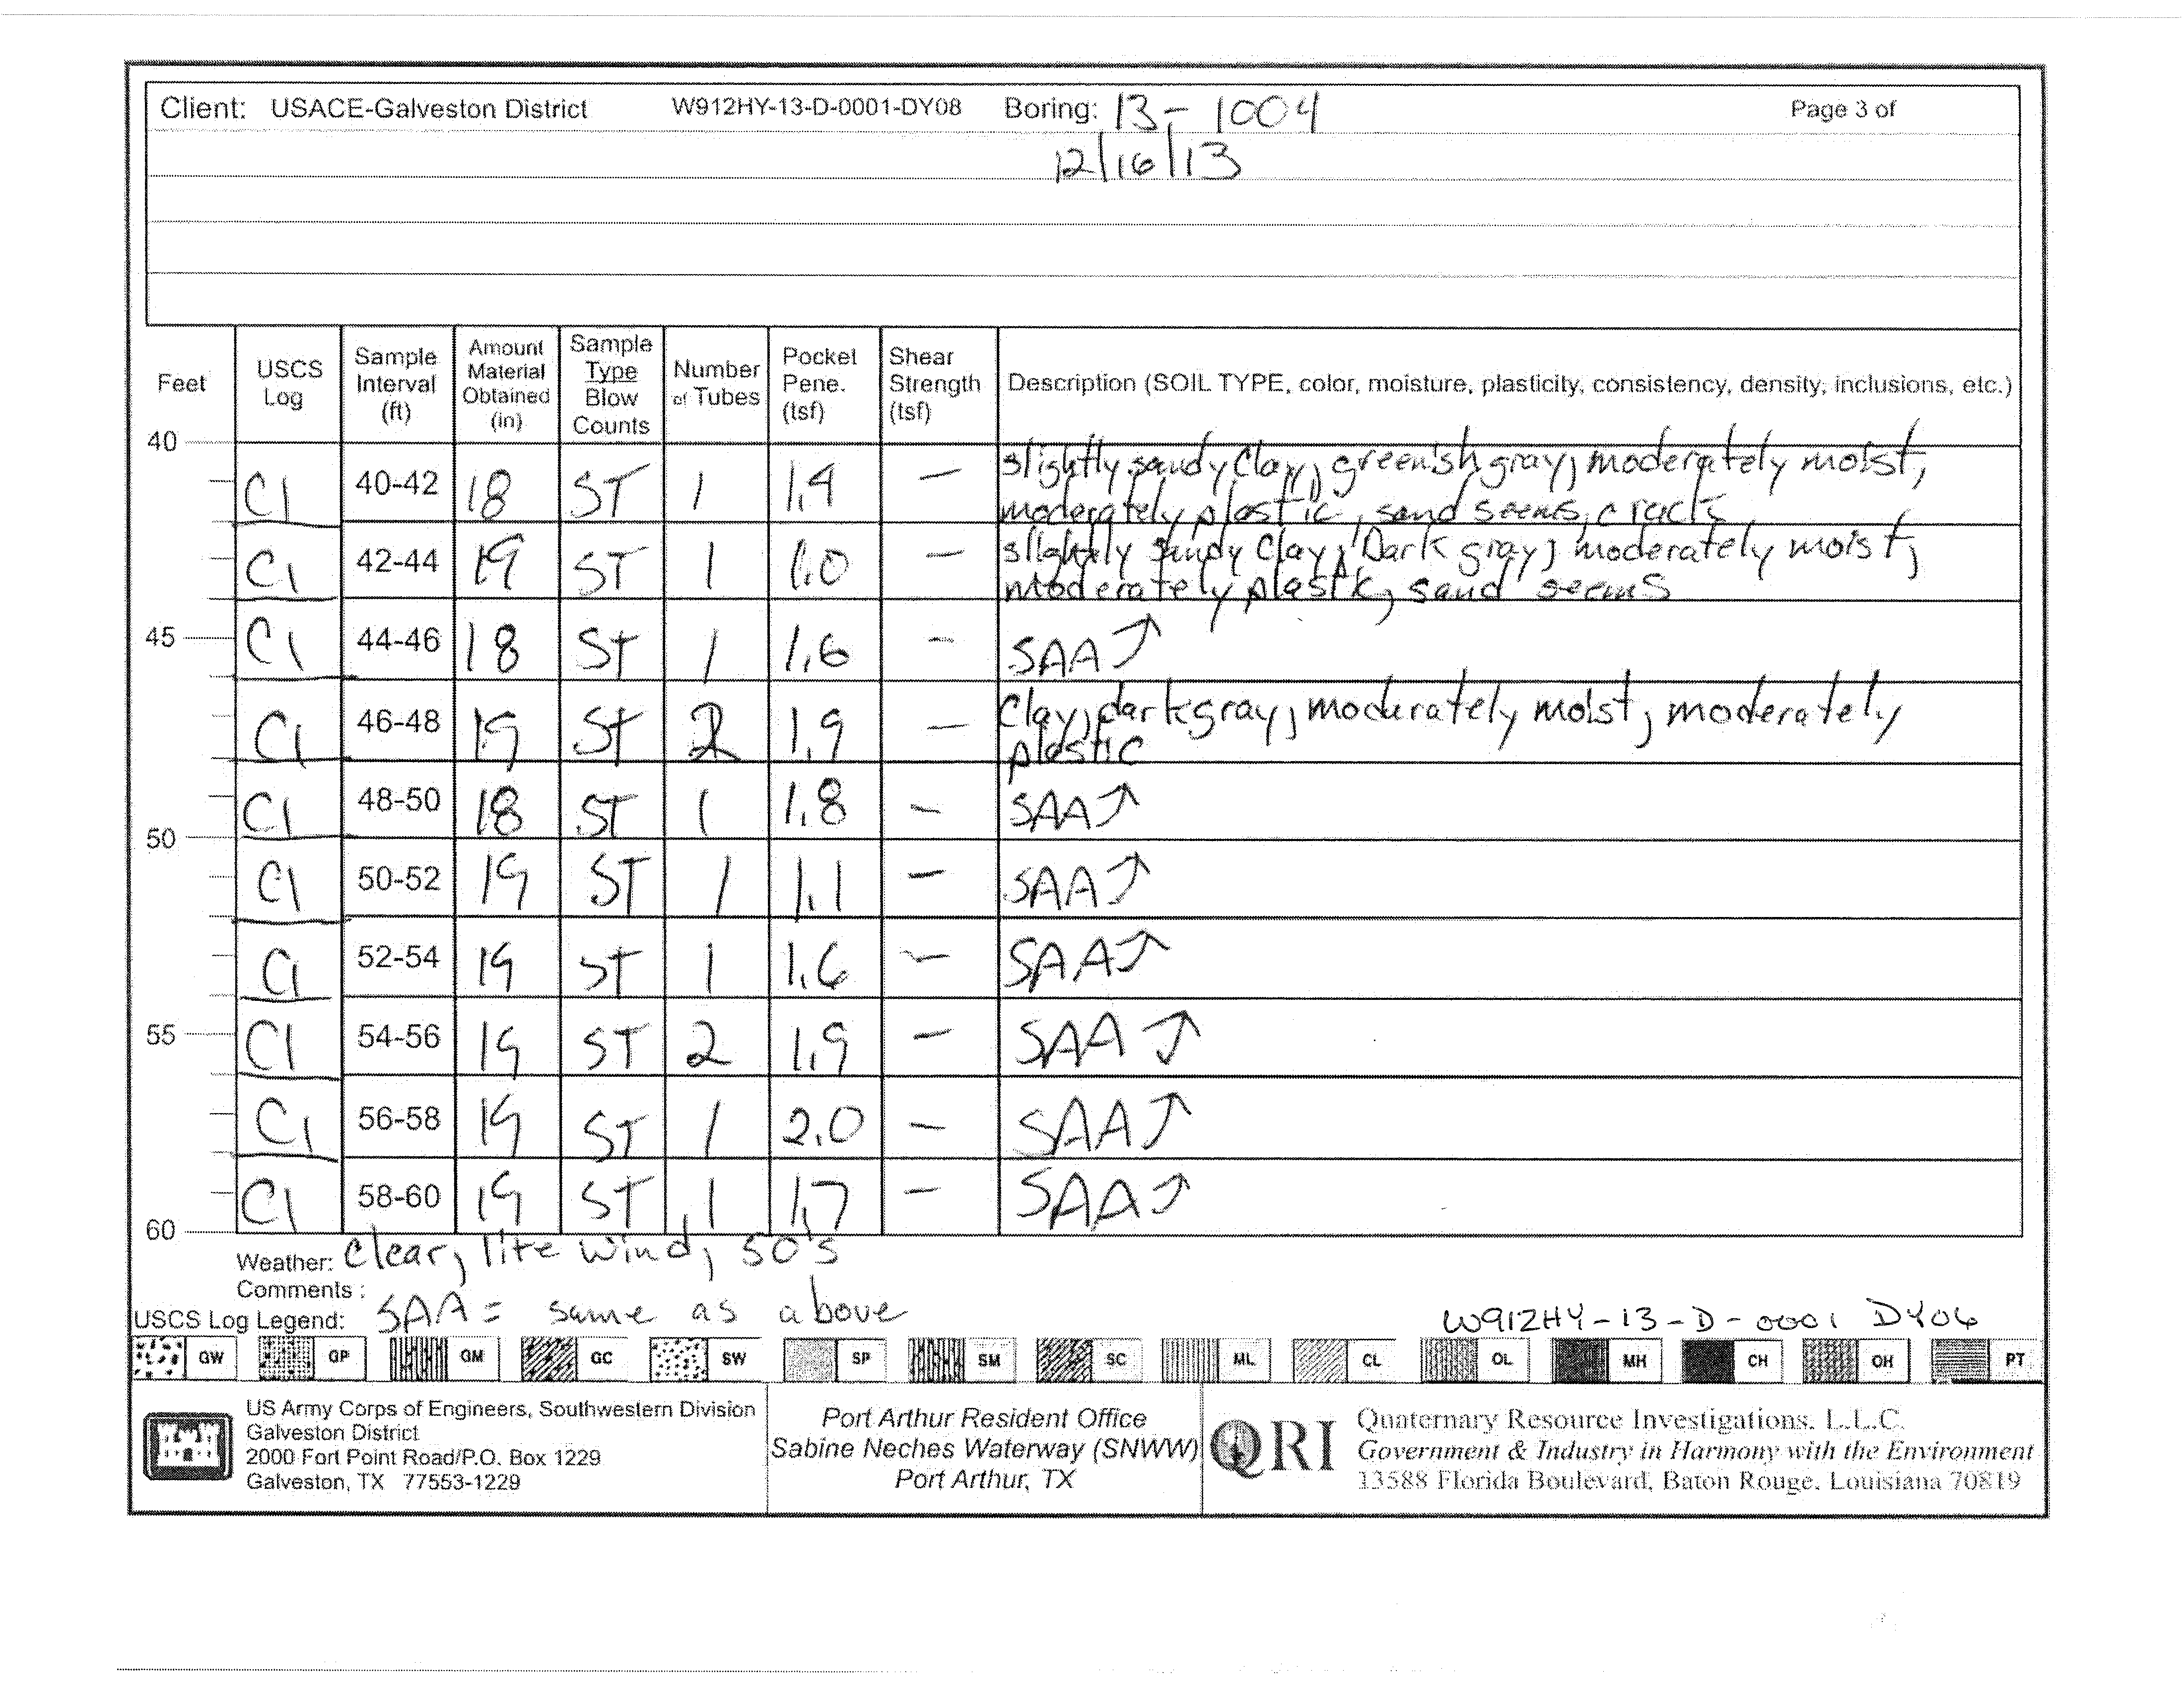 Client: USACE-Galveston District W912HY-13-D-0001-DY08 Boring: 13-1004 Page 3 of
12/16/13
Feet USCS Log Sample Interval (ft) Amount Material Obtained (in) Sample Type Blow Counts Number of Tubes Pocket Pene. (tsf) Shear Strength (tsf) Description (SOIL TYPE, color, moisture, plasticity, consistency, density, inclusions, etc.)
40
Cl 40-42 18 ST 1 1.4 – slightly sandy Clay, greenish gray, moderately moist,
moderately plastic, sand seems, cracks
Cl 42-44 19 ST 1 1.0 – slightly sandy Clay, Dark gray, moderately moist,
moderately plastic, sand seems
45 Cl 44-46 18 ST 1 1.6 – SAA ↑
Cl 46-48 19 ST 2 1.9 – Clay, dark gray, moderately moist, moderately
plastic
Cl 48-50 18 ST 1 1.8 – SAA ↑
50
Cl 50-52 19 ST 1 1.1 – SAA ↑
Cl 52-54 19 ST 1 1.6 – SAA ↑
55 Cl 54-56 19 ST 2 1.9 – SAA ↑
Cl 56-58 19 ST 1 2.0 – SAA ↑
Cl 58-60 19 ST 1 1.7 – SAA ↑
60
Weather: Clear, lite wind, 50's
Comments :
USCS Log Legend: SAA = same as above W912HY-13-D-0001 DY06
GW GP GM GC SW SP SM SC ML CL OL MH CH OH PT
US Army Corps of Engineers, Southwestern Division
Galveston District
2000 Fort Point Road/P.O. Box 1229
Galveston, TX 77553-1229
Port Arthur Resident Office
Sabine Neches Waterway (SNWW)
Port Arthur, TX
QRI
Quaternary Resource Investigations, L.L.C.
Government & Industry in Harmony with the Environment
13588 Florida Boulevard, Baton Rouge, Louisiana 70819